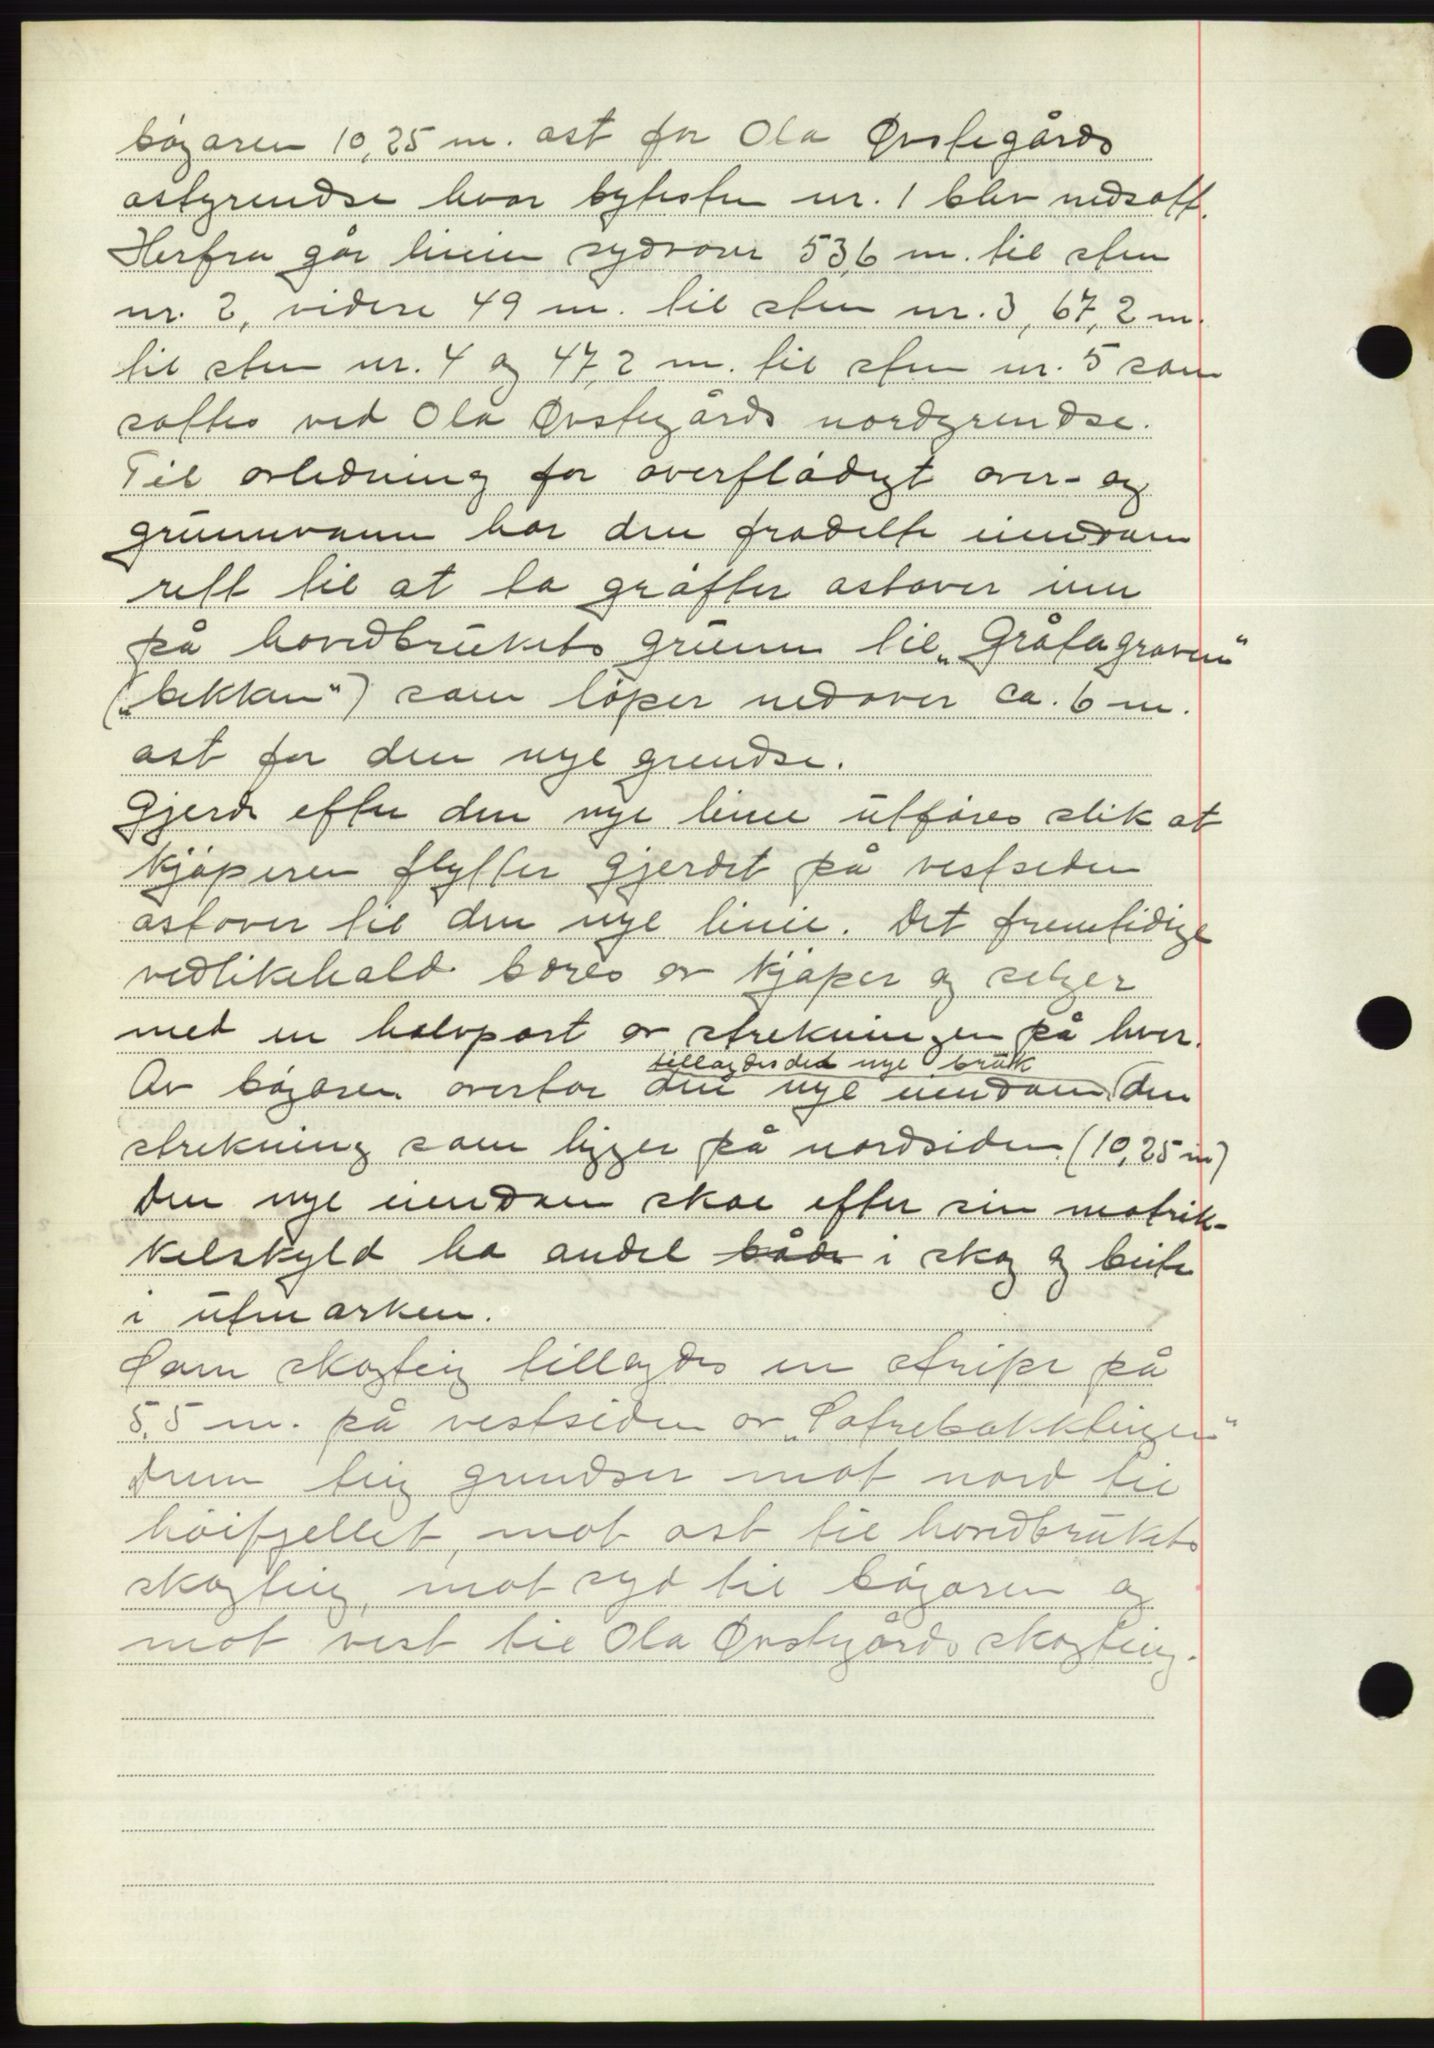 bøgaren 10,25 m. øst for Ola Øvstegårds
østgrendse hvor bytesten nr. 1 blev nedsatt.
Herfra går linien sydover 53,6 m. til sten
nr. 2, videre 49 m. til sten nr. 3, 67,2 m.
til sten nr. 4 og 47,2 m. til sten nr. 5 som
sattes ved Ola Øvstegårds nordgrendse.
Til avledning for overflødigt over- og
grunnvann har den fradelte eiendom
rett til at ta grøfter østover inn
på hovedbrukets grunn til „Gråtagraven“
(„bekkan“) som løper nedover ca. 6 m.
øst for den nye grendse.
Gjerde efter den nye linie utføres slik at
kjøperen flytter gjerdet på vestsiden
østover til den nye linie. Det fremtidige
vedlikehold bæres av kjøper og selger
med en halvpart av strekningen på hver.
tillagdes det nye bruk
Av bøgaren overfor den nye eiendom den
strekning som ligger på nordsiden (10,25 m)
Den nye eiendom skal efter sin matrik-
kelskyld ha andel både i skog og beite
i utmarken.
Som skogteig tillagdes en stripe på
5,5 m. på vestsiden av „Sætrebakkteigen“
Denn teig grendser mot nord til
høifjellet, mot øst til hovedbrukets
skogteig, mot syd til bøgaren og
mot vest til Ola Øvstegårds skogteig.